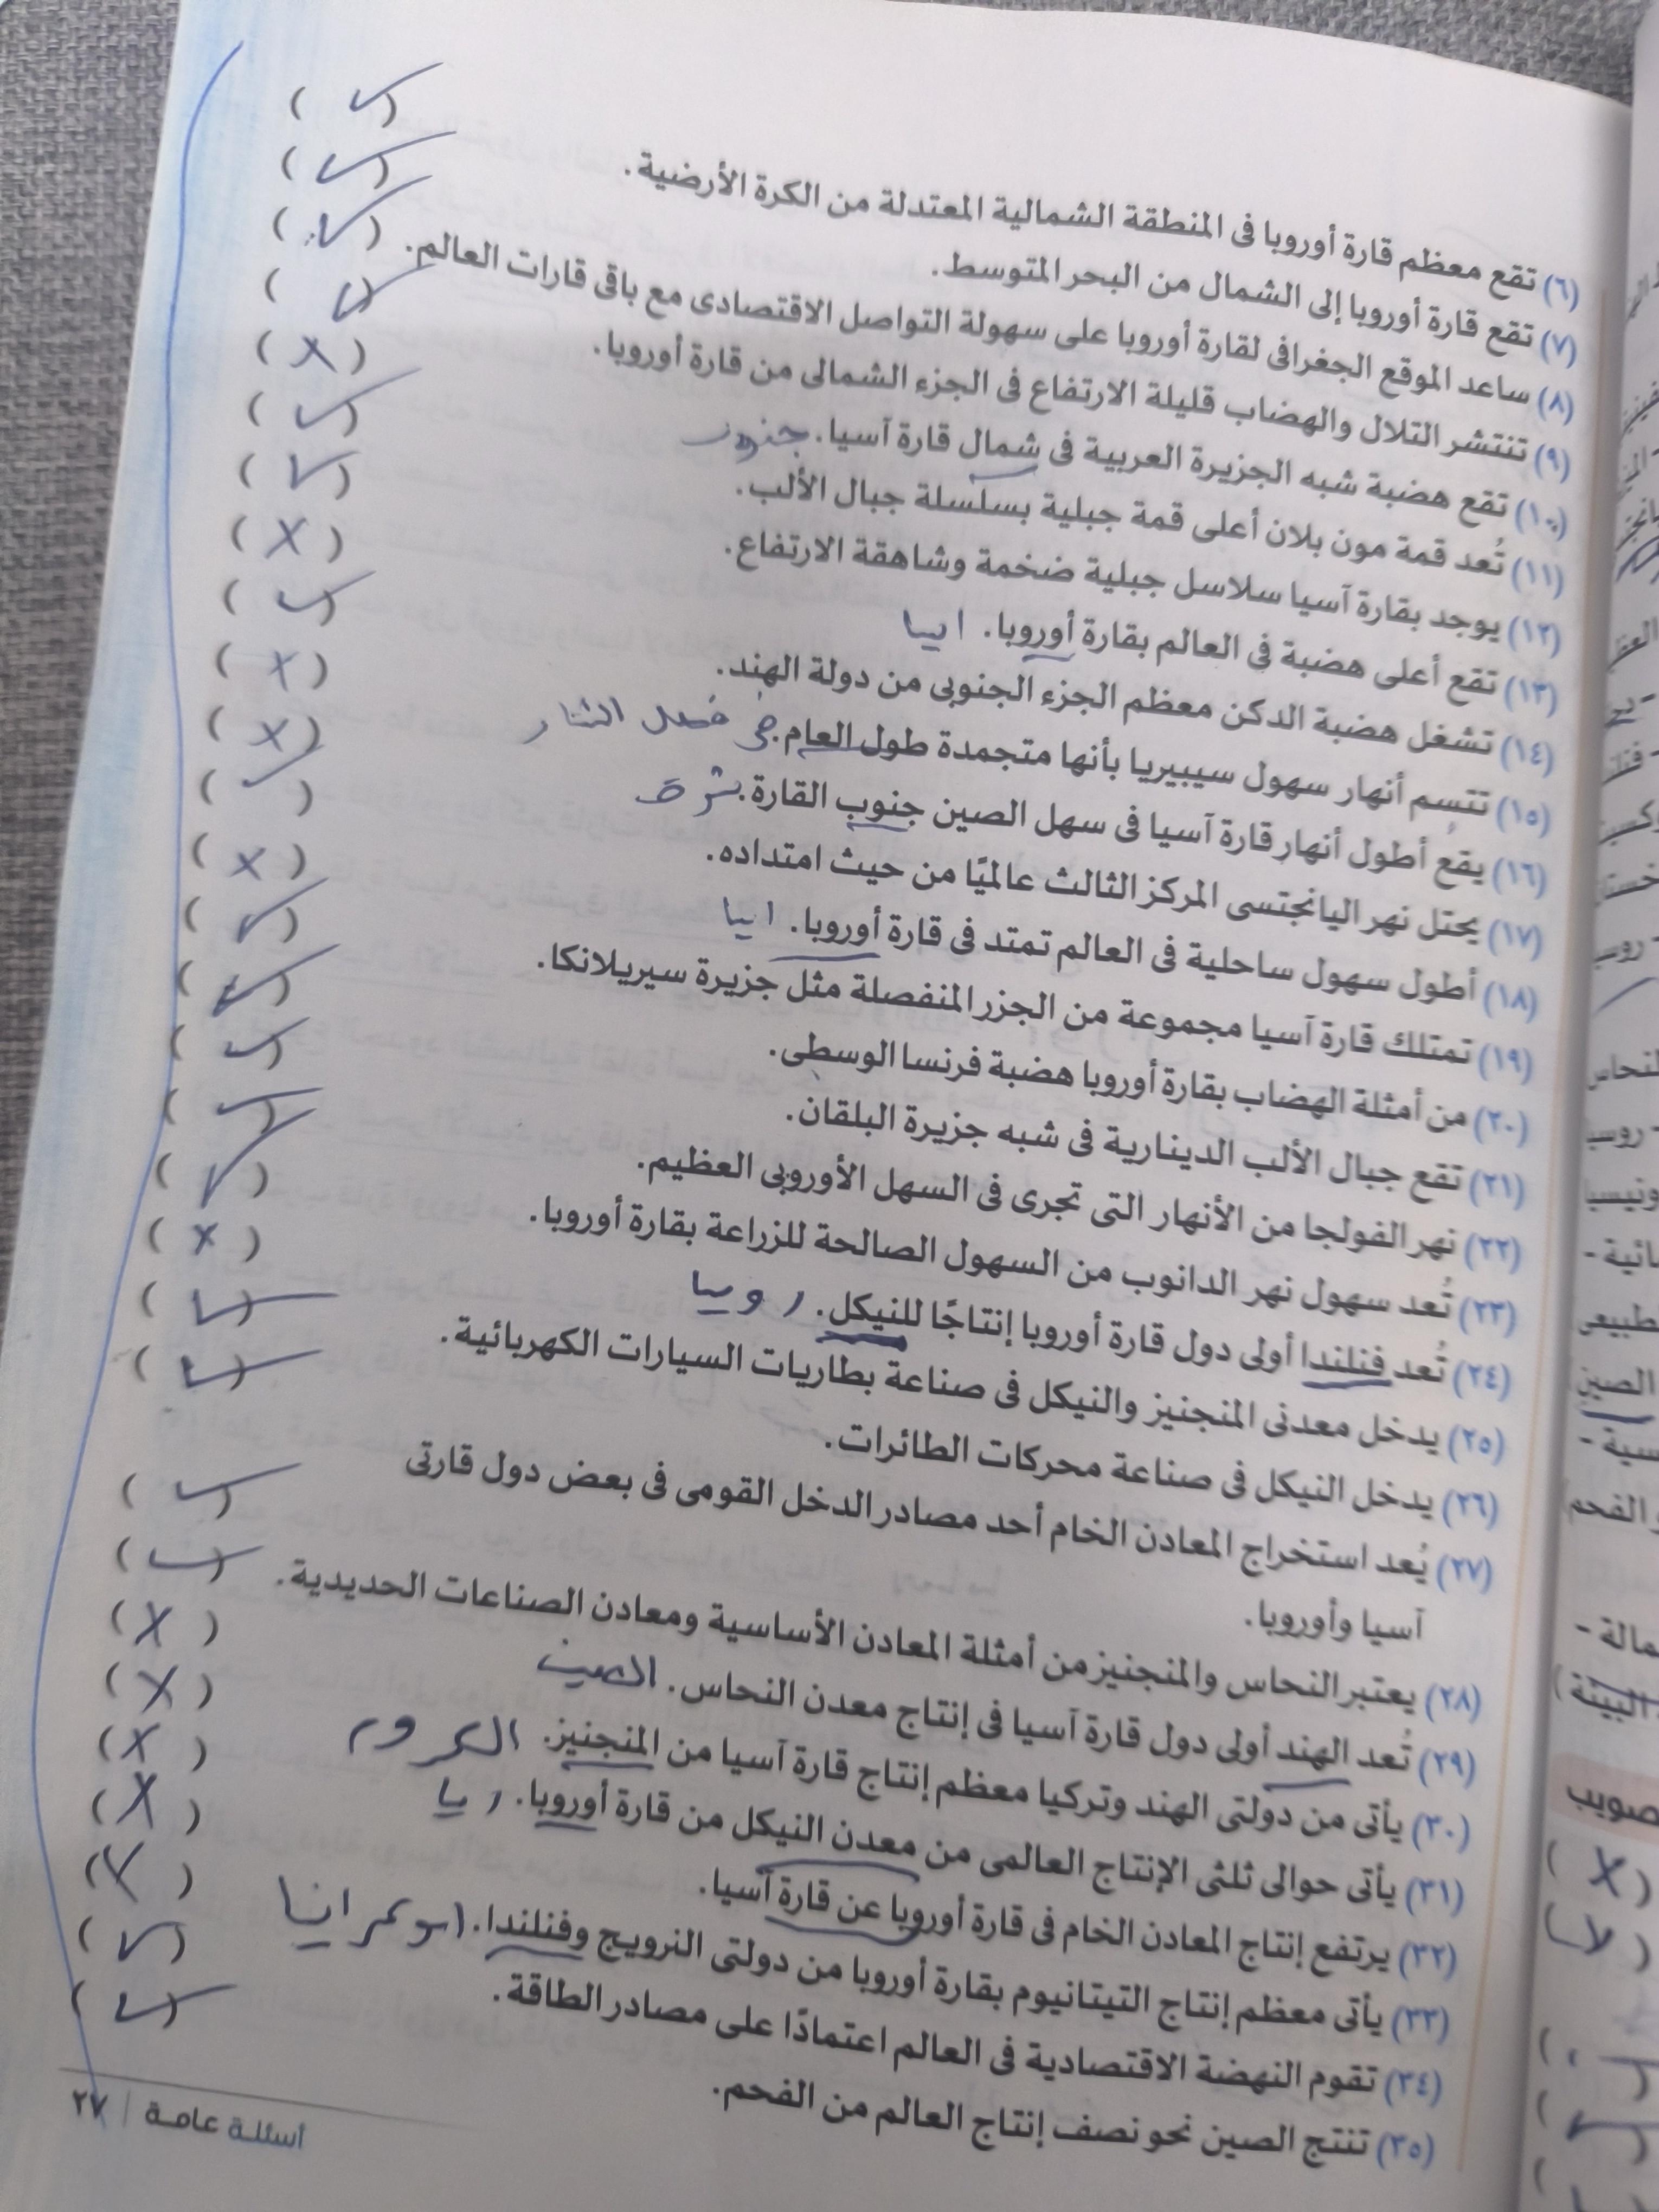 (٦) تقع معظم قارة أوروبا فى المنطقة الشمالية المعتدلة من الكرة الأرضية. (✓)
(٧) تقع قارة أوروبا إلى الشمال من البحر المتوسط. (✓)
(٨) ساعد الموقع الجغرافى لقارة أوروبا على سهولة التواصل الاقتصادى مع باقى قارات العالم. (✓)
(٩) تنتشر التلال والهضاب قليلة الارتفاع فى الجزء الشمالى من قارة أوروبا. (✓)
(١٠) تقع هضبة شبه الجزيرة العربية فى شمال قارة آسيا. جنوب (X)
(١١) تُعد قمة مون بلان أعلى قمة جبلية بسلسلة جبال الألب. (✓)
(١٢) يوجد بقارة آسيا سلاسل جبلية ضخمة وشاهقة الارتفاع. (✓)
(١٣) تقع أعلى هضبة فى العالم بقارة أوروبا. اسيا (X)
(١٤) تشغل هضبة الدكن معظم الجزء الجنوبى من دولة الهند. (✓)
(١٥) تتسم أنهار سهول سيبيريا بأنها متجمدة طول العام. فى فصل الشتاء (X)
(١٦) يقع أطول أنهار قارة آسيا فى سهل الصين جنوب القارة. شرق (X)
(١٧) يحتل نهر اليانجتسى المركز الثالث عالميًا من حيث امتداده. (✓)
(١٨) أطول سهول ساحلية فى العالم تمتد فى قارة أوروبا. اسيا (X)
(١٩) تمتلك قارة آسيا مجموعة من الجزر المنفصلة مثل جزيرة سيريلانكا. (✓)
(٢٠) من أمثلة الهضاب بقارة أوروبا هضبة فرنسا الوسطى. (✓)
(٢١) تقع جبال الألب الدينارية فى شبه جزيرة البلقان. (✓)
(٢٢) نهر الفولجا من الأنهار التى تجرى فى السهل الأوروبى العظيم. (✓)
(٢٣) تُعد سهول نهر الدانوب من السهول الصالحة للزراعة بقارة أوروبا. (✓)
(٢٤) تُعد فنلندا أولى دول قارة أوروبا إنتاجًا للنيكل. روسيا (X)
(٢٥) يدخل معدنى المنجنيز والنيكل فى صناعة بطاريات السيارات الكهربائية. (✓)
(٢٦) يدخل النيكل فى صناعة محركات الطائرات. (✓)
(٢٧) يُعد استخراج المعادن الخام أحد مصادر الدخل القومى فى بعض دول قارتى
آسيا وأوروبا. (✓)
(٢٨) يعتبر النحاس والمنجنيز من أمثلة المعادن الأساسية ومعادن الصناعات الحديدية. (✓)
(٢٩) تُعد الهند أولى دول قارة آسيا فى إنتاج معدن النحاس. الصين (X)
(٣٠) يأتى من دولتى الهند وتركيا معظم إنتاج قارة آسيا من المنجنيز. الكروم (X)
(٣١) يأتى حوالى ثلثى الإنتاج العالمى من معدن النيكل من قارة أوروبا. (X)
(٣٢) يرتفع إنتاج المعادن الخام فى قارة أوروبا عن قارة آسيا. (X)
(٣٣) يأتى معظم إنتاج التيتانيوم بقارة أوروبا من دولتى النرويج وفنلندا. (X)
(٣٤) تقوم النهضة الاقتصادية فى العالم اعتمادًا على مصادر الطاقة. (✓)
(٣٥) تنتج الصين نحو نصف إنتاج العالم من الفحم. (✓)
أسئلة عامة | ٢٧